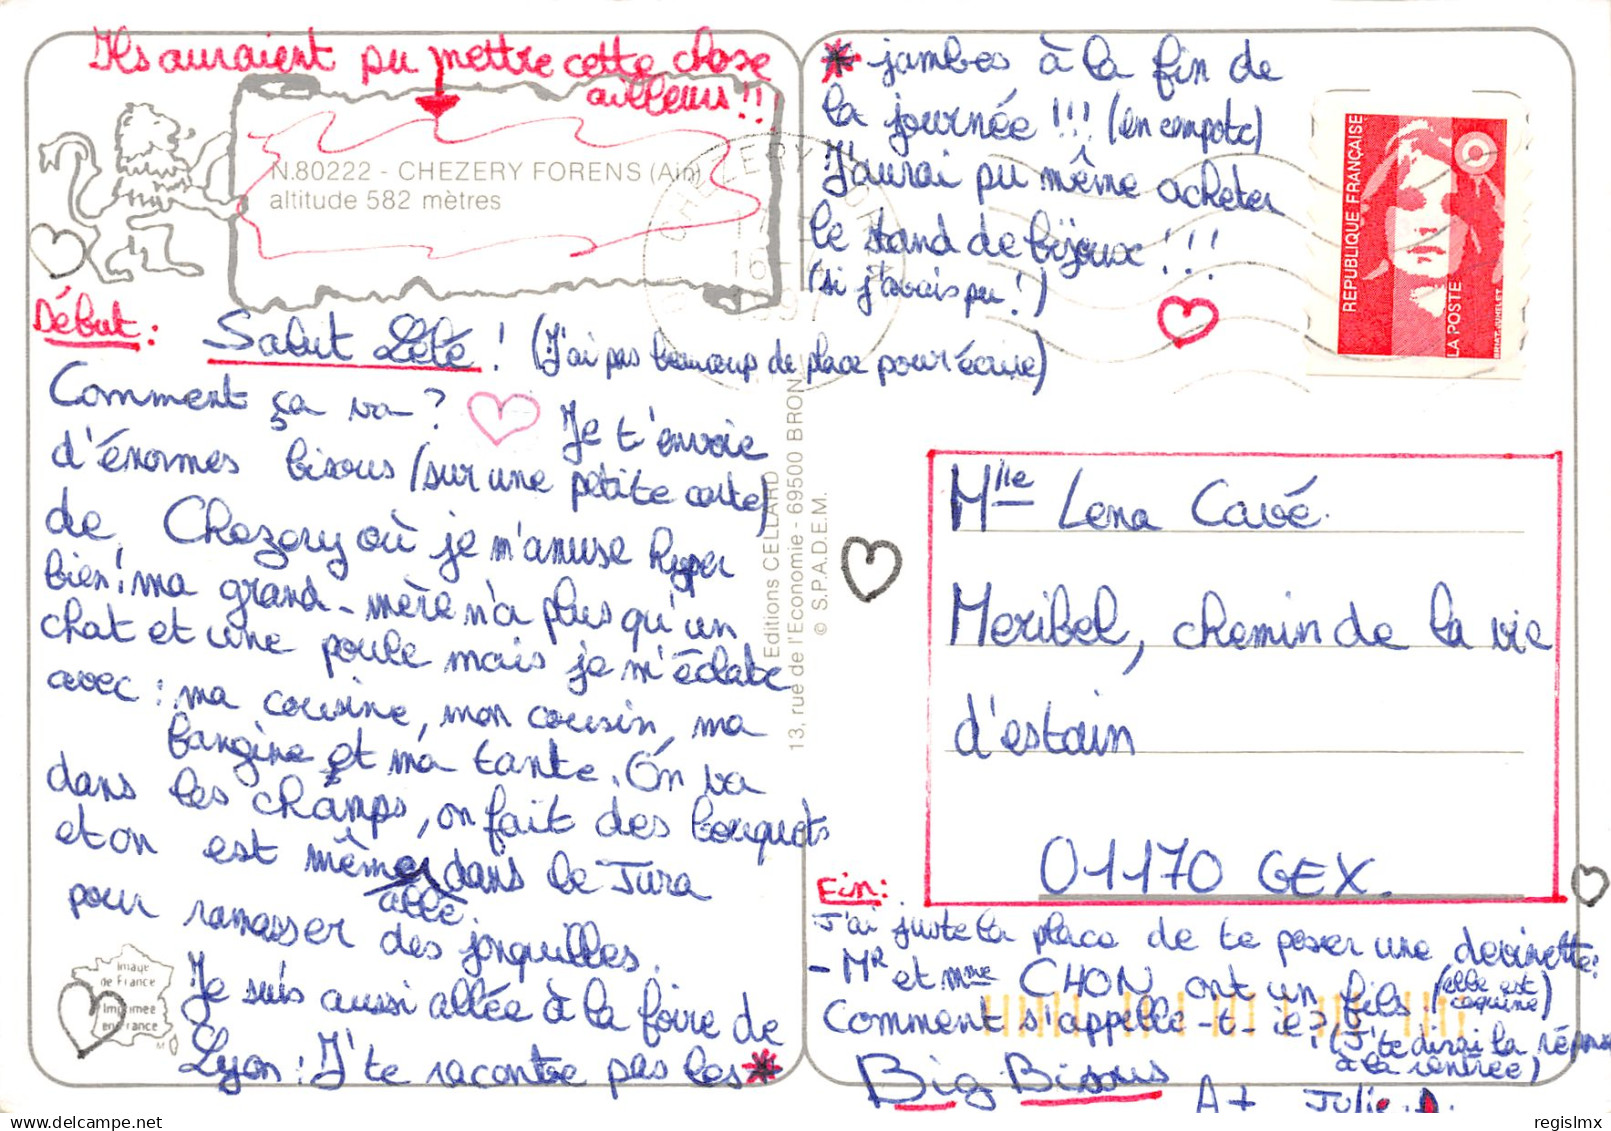 Ils auraient pu mettre cette chose
ailleurs !!
N.80222 - CHEZERY FORENS (Ain)
altitude 582 mètres
Début : Salut Lété ! (J'ai pas beaucoup de place pour écrire)
Comment ça va ? Je t'envoie
d'énormes bisous (sur une petite carte)
de Chezery où je m'amuse hyper
bien ! ma grand-mère n'a plus qu'un
chat et une poule mais je m'éclate
avec : ma cousine, mon cousin, ma
frangine et ma tante. On va
dans les champs, on fait des bouquets
et on est même allé dans le Jura
pour ramasser des jonquilles.
Je suis aussi allée à la foire de
Lyon : J'te racontre pas les *
Image
de France
Imprimée
en France
Editions CELLARD
13, rue de l'Economie - 69500 BRON
© S.P.A.D.E.M.
* jambes à la fin de
la journée !!! (en compote)
J'aurai pu même acheter
le stand de bijoux !!!
(si j'avais pu !)
CHEZERY
16 -
1997
RÉPUBLIQUE FRANÇAISE
LA POSTE
Mlle Lena Cavé.
Meribel, chemin de la vie
d'estain
01170 GEX.
Fin :
J'ai juste la place de te poser une devinette :
- Mr et mme CHON ont un fils (elle est coquine)
Comment s'appelle-t-il ? (J'te dirai la réponse
à la rentrée)
Big Bisous A+ Julie.D.
regislmx